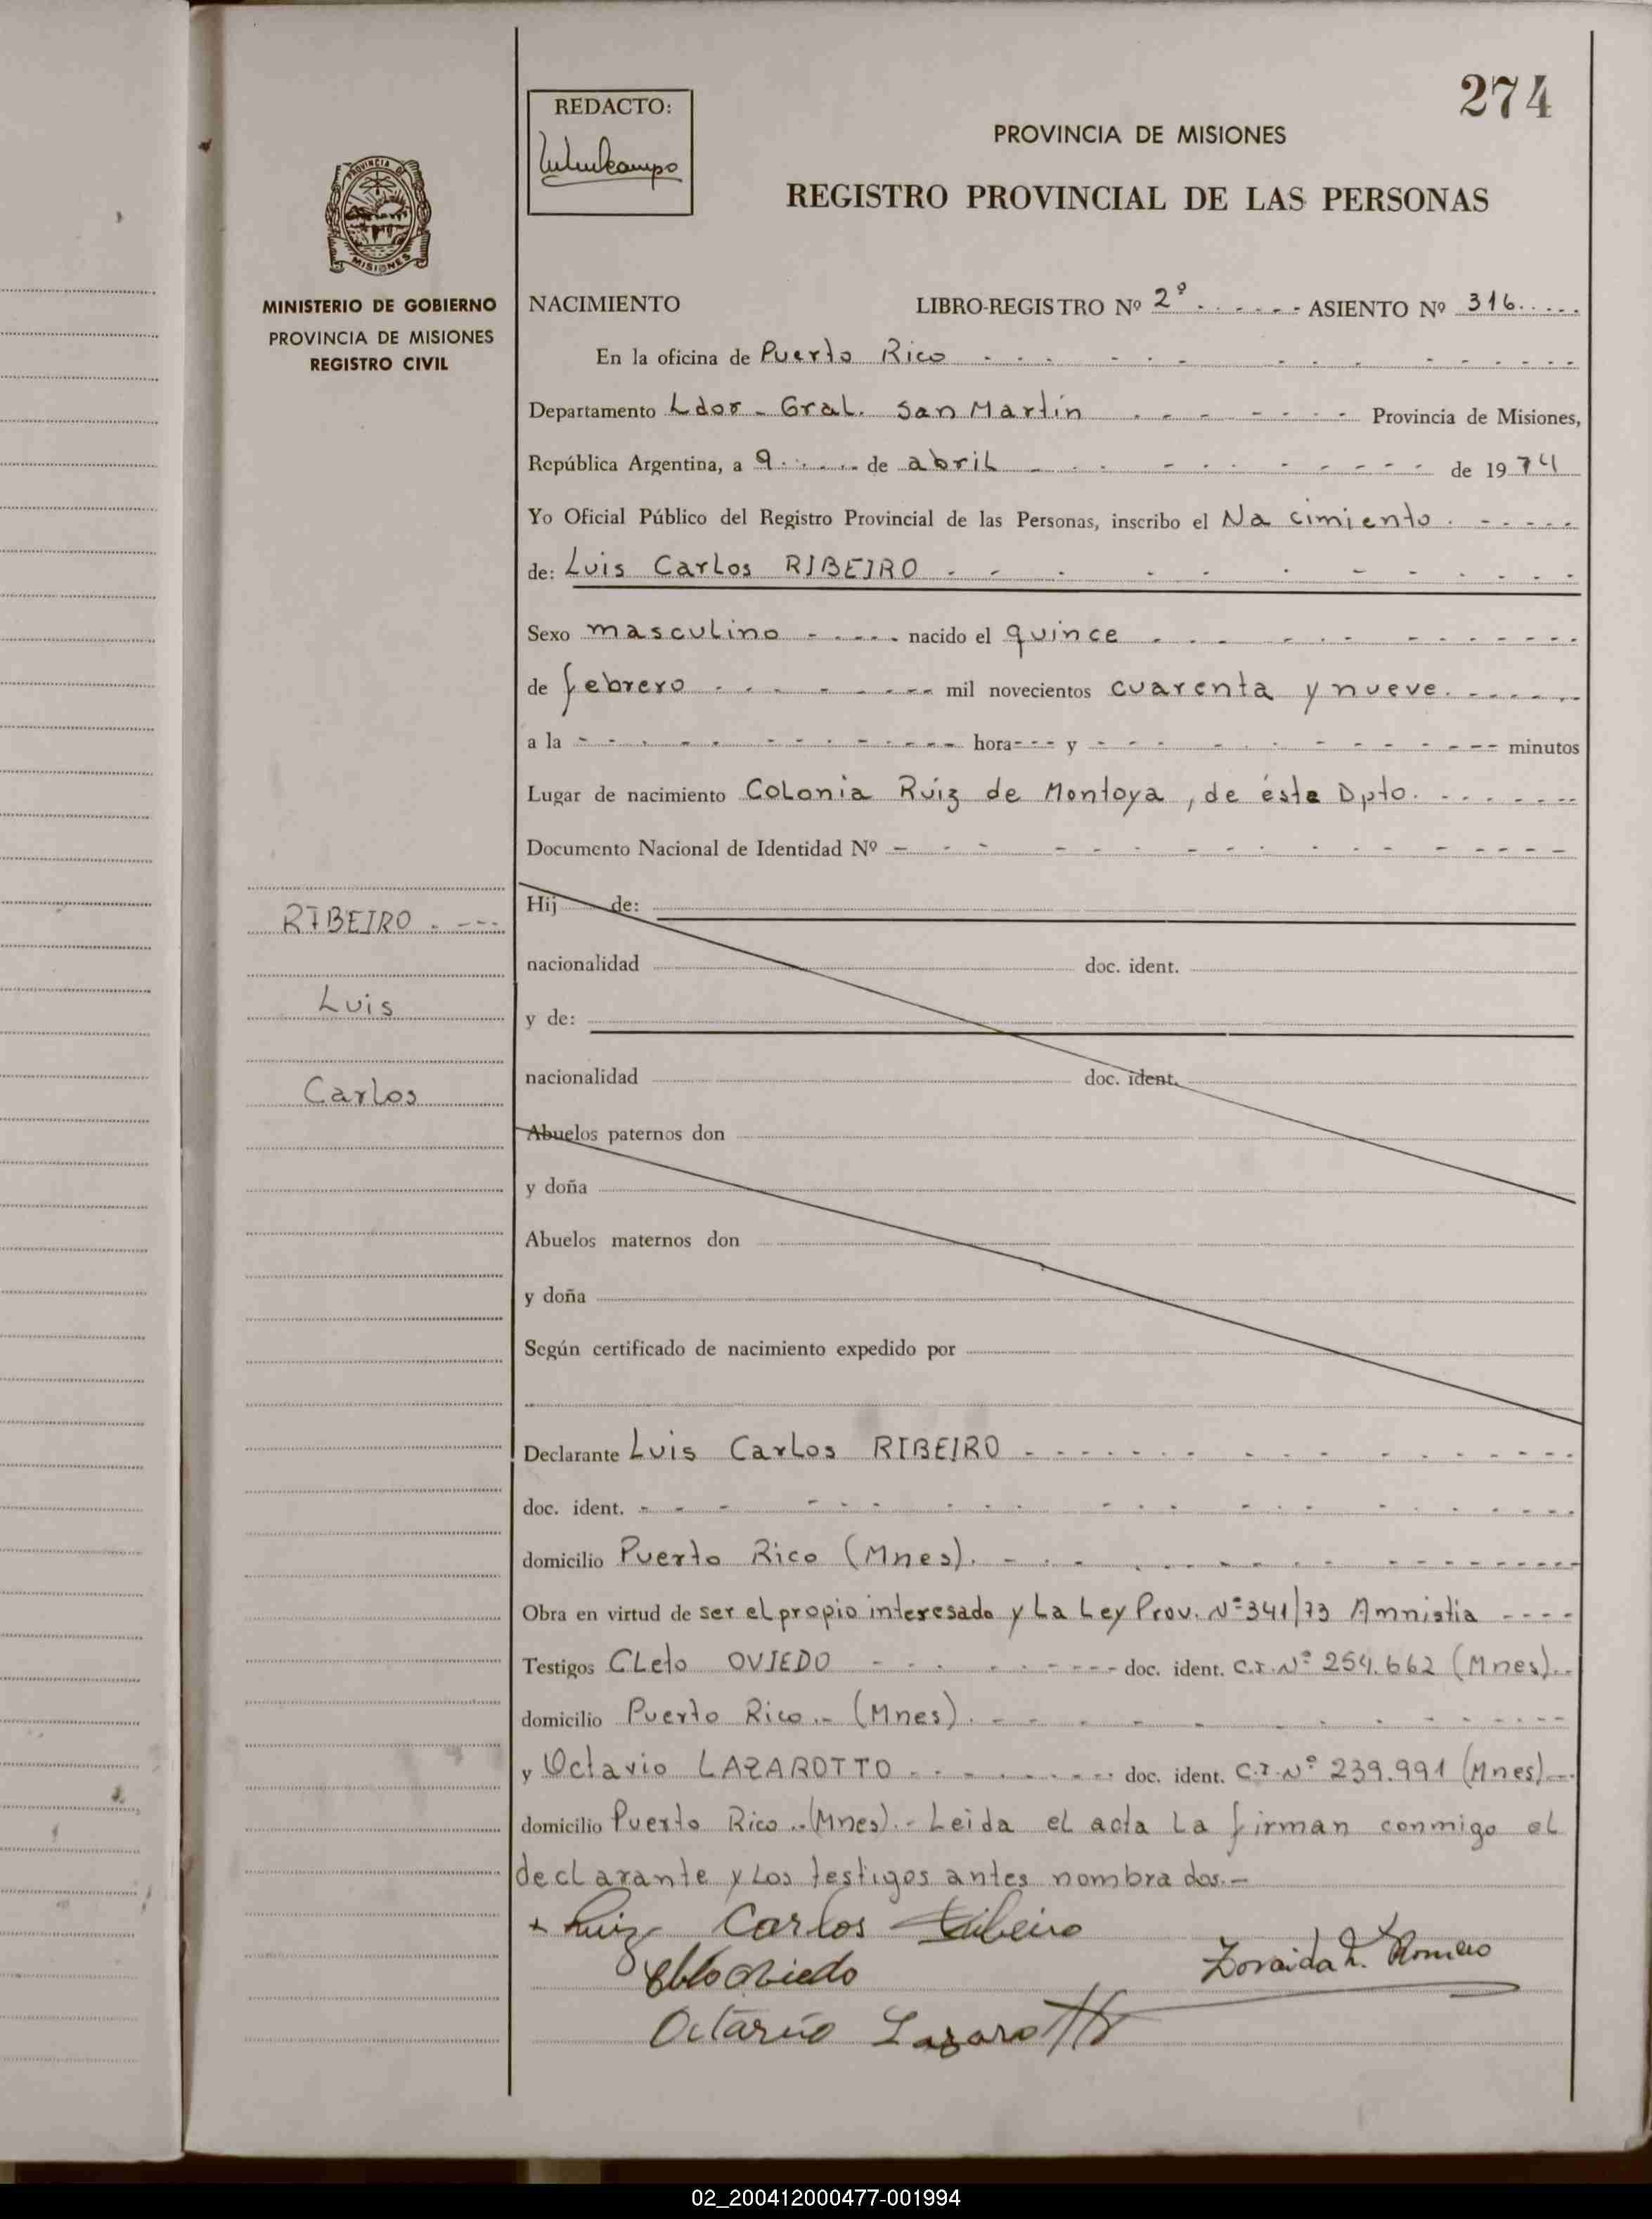 274
REDACTO:
PROVINCIA DE MISIONES
REGISTRO PROVINCIAL DE LAS PERSONAS
PROVINCIA DE
MISIONES
MINISTERIO DE GOBIERNO
PROVINCIA DE MISIONES
REGISTRO CIVIL
NACIMIENTO LIBRO-REGISTRO Nº 2º ASIENTO Nº 316
En la oficina de Puerto Rico
Departamento Ldor - Gral. San Martin Provincia de Misiones,
República Argentina, a 9 de abril de 1974
Yo Oficial Público del Registro Provincial de las Personas, inscribo el Nacimiento
de: Luis Carlos RIBEIRO
Sexo masculino nacido el quince
de febrero mil novecientos cuarenta y nueve.
a la hora y minutos
Lugar de nacimiento Colonia Ruiz de Montoya, de ésta Dpto.
Documento Nacional de Identidad Nº
Hij de:
RIBEIRO
nacionalidad doc. ident.
Luis
y de:
nacionalidad doc. ident.
Carlos
Abuelos paternos don
y doña
Abuelos maternos don
y doña
Según certificado de nacimiento expedido por
Declarante Luis Carlos RIBEIRO
doc. ident.
domicilio Puerto Rico (Mnes).
Obra en virtud de ser el propio interesado y La Ley Prov. Nº 341/73 Amnistia
Testigos Cleto OVIEDO doc. ident. C.I. Nº 254.662 (Mnes).
domicilio Puerto Rico.- (Mnes).
y Octavio LAZAROTTO doc. ident. C.I. Nº 239.991 (Mnes)
domicilio Puerto Rico.-(Mnes).- Leida el acta la firman conmigo el
declarante y Los testigos antes nombrados.-
+ Luiz Carlos Ribeiro
Oviedo Zoraida L. Romero
Octavio Lazarotto
02_200412000477-001994